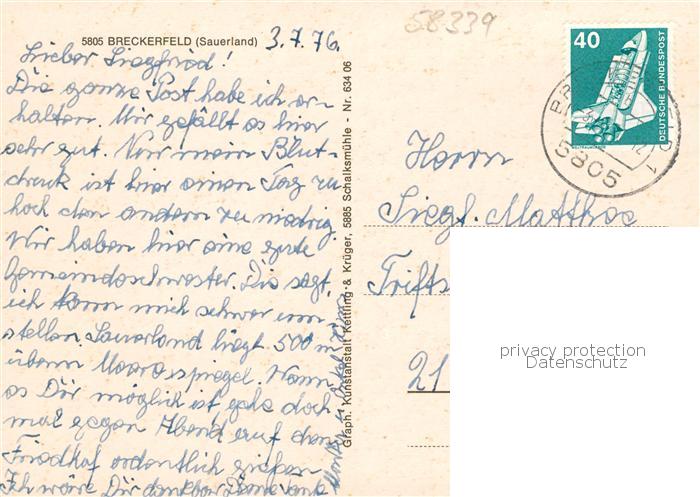 5805 BRECKERFELD (Sauerland) 3.7.76.
Lieber Siegfried!
Die ganze Post habe ich er-
halten. Mir gefällt es hier
sehr gut. Nur mein Blut-
druck ist hier einen Tag zu
hoch den andern zu niedrig.
Wir haben hier eine gute
Gemeindeschwester. Die sagt,
ich kann mich schwer um
stellen. Sauerland liegt 500 m
überm Meeresspiegel. Wenn
es Dir möglich ist gehe doch
mal gegen Abend auf den
Friedhof ordentlich gießen
Ich wäre Dir dankbar Deine Tante
Graph. Kunstanstalt Kettling & Krüger, 5885 Schalksmühle - Nr. 634 06
58339
40
DEUTSCHE BUNDESPOST
WELTRAUMLABOR
5805
1
Herrn
Siegf. Matthee
Trifts
21
privacy protection
Datenschutz